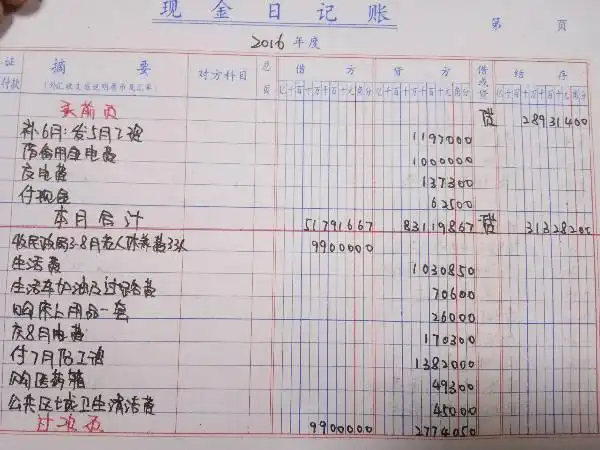 现金日记账
第 页
2016年度
证 摘要 对方科目 总页 借方 贷方 借或贷 结存
付款 亿千百十万千百十元角分 亿千百十万千百十元角分 亿千百十万千百十元角分
承前页 贷 28931400
补6月:发5月工资 1197000
1000000
交电费 137300
付现金 62500
本月合计 51791667 83119867 贷 31328200
收民政局3-8月老人休养费33人 9900000
生活费 1030850
生活车加油及过路费 70600
购床上用品一套 26000
交8月电费 170300
付7月份工资 1382000
购医药箱 49300
公共区域卫生清洁费 45000
过次页 9900000 2774050